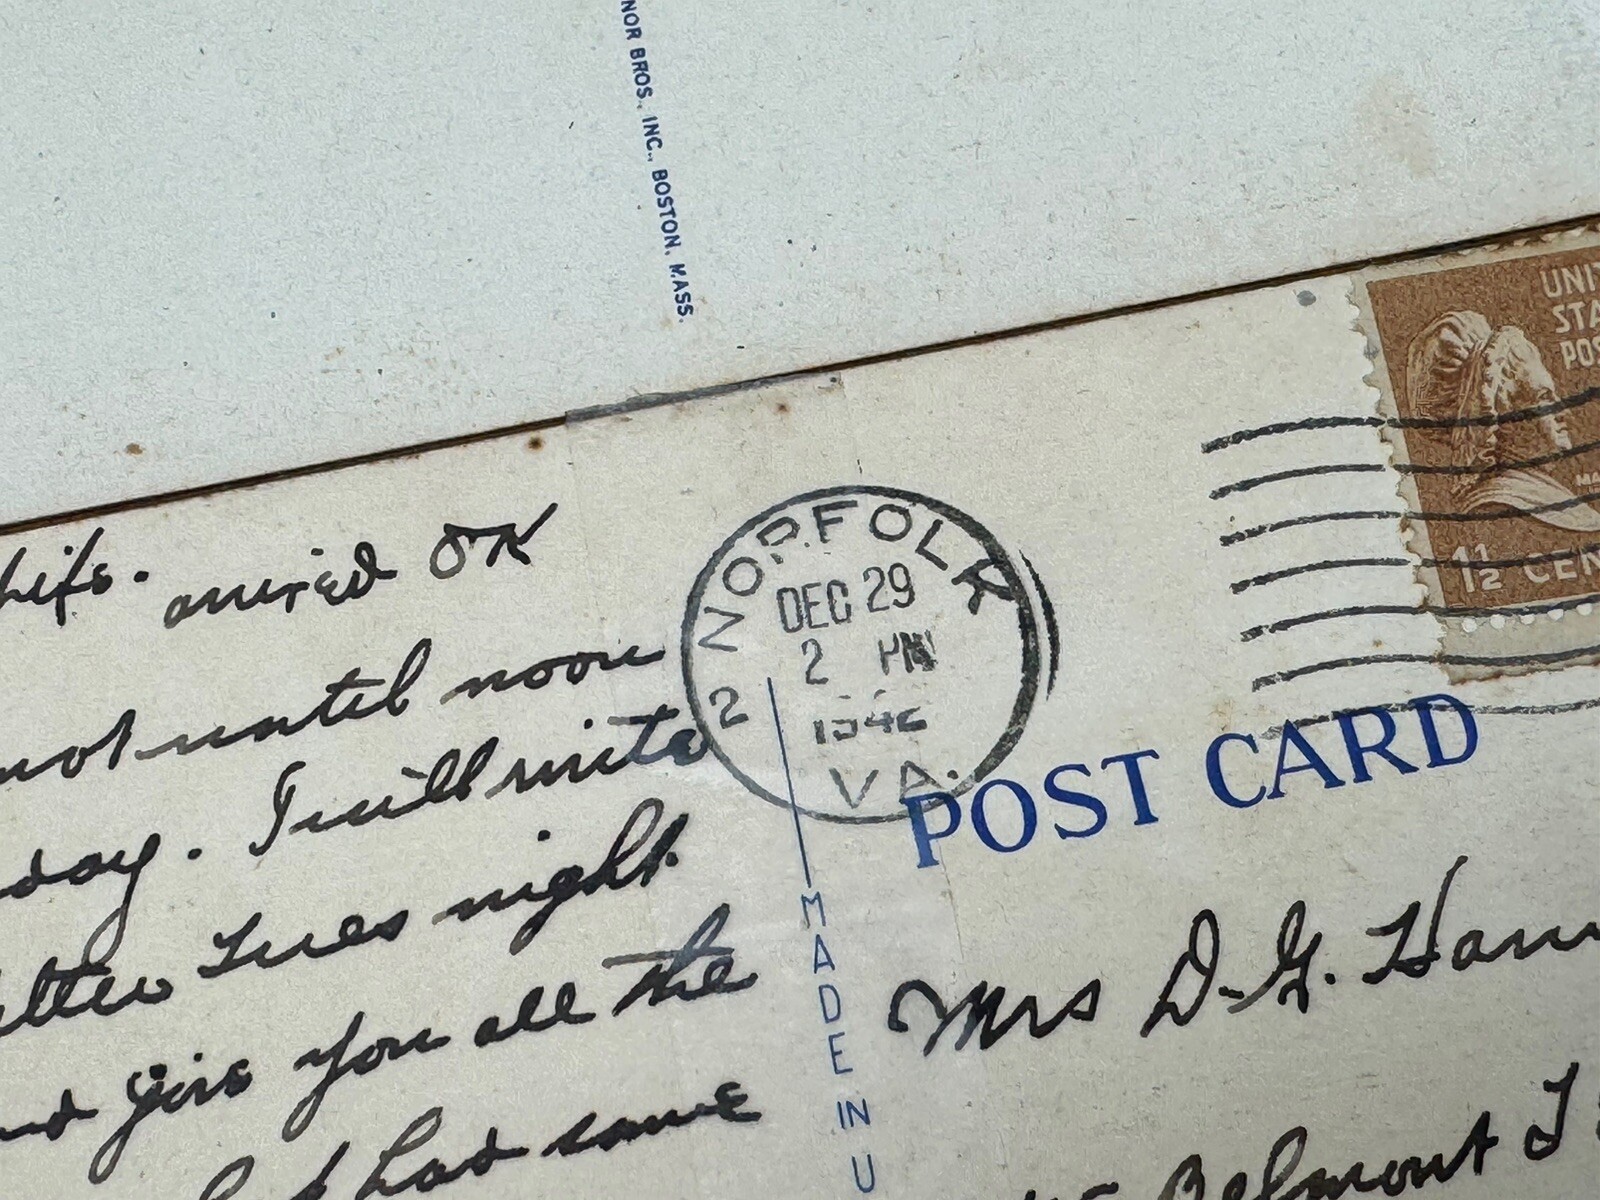 NOR BROS., INC., BOSTON, MASS.
Life. arrived OK
not until noon
day. I will write
Tues night
give you all the
had some
NORFOLK
DEC 29
2 PM
194
2 VA.
UNIT
STA
POS
MA
1½ CEN
POST CARD
MADE IN U
Mrs D. G. Han
Belmont